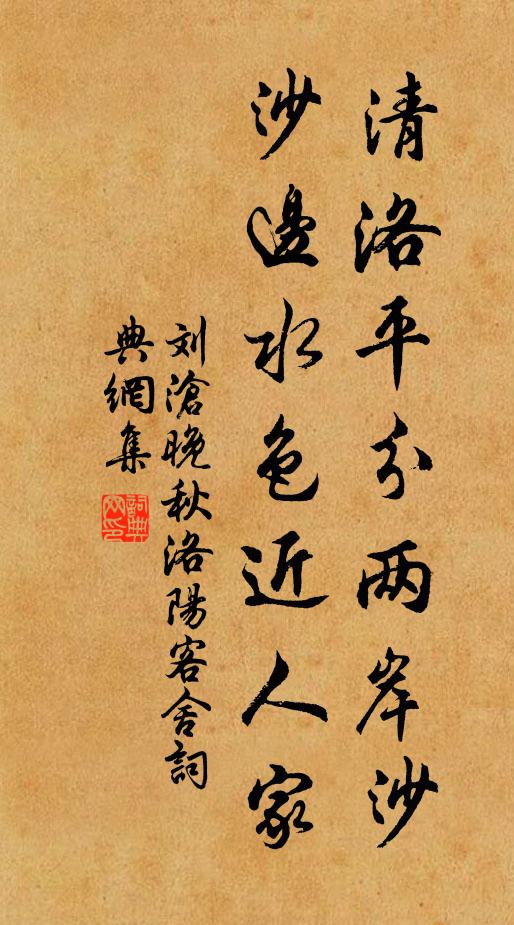 清洛平分两岸沙
沙邊水色近人家
刘滄晚秋洛陽客舍詞
典網集
詞典网印